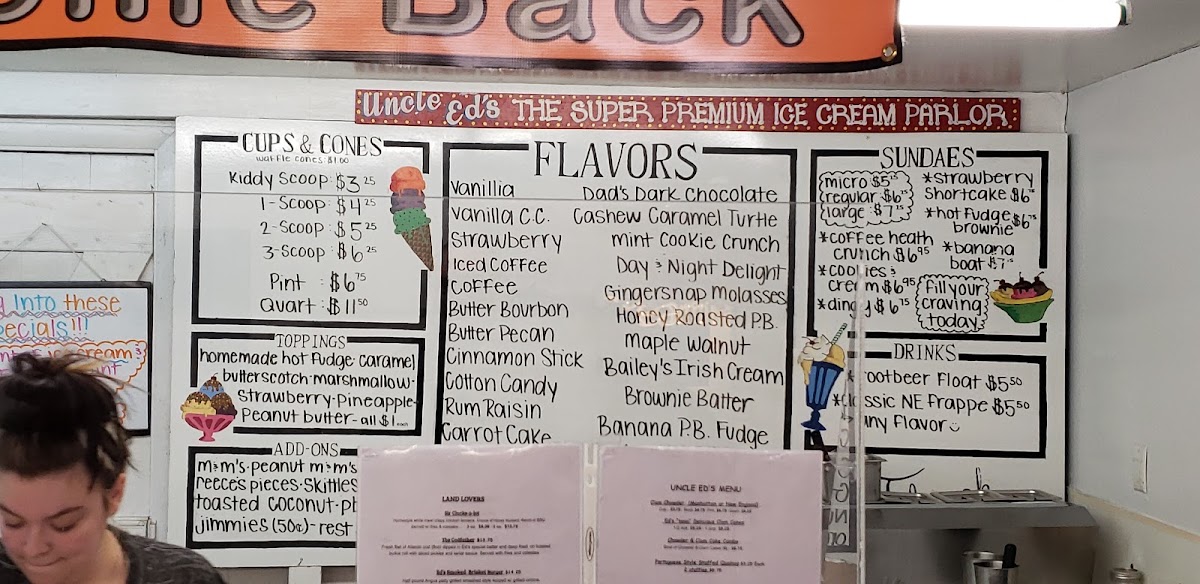 Back
Uncle Ed's THE SUPER PREMIUM ICE CREAM PARLOR
CUPS & CONES
waffle cones: $1.00
Kiddy Scoop: $3.25
1-Scoop: $4.25
2-Scoop: $5.25
3-Scoop: $6.25
Pint: $6.75
Quart: $11.50
TOPPINGS
homemade hot fudge·caramel
butterscotch·marshmallow·
strawberry·pineapple·
Peanut butter-all $1 each
ADD-ONS
m&m's·peanut m&m's
reece's pieces·skittles
toasted coconut·
jimmies (50¢)-rest
FLAVORS
Vanillia
Vanilla C.C.
Strawberry
Iced Coffee
Coffee
Butter Bourbon
Butter Pecan
Cinnamon Stick
Cotton Candy
Rum Raisin
Carrot Cake
Dad's Dark Chocolate
Cashew Caramel Turtle
mint Cookie Crunch
Day & Night Delight
Gingersnap Molasses
Honey Roasted P.B.
maple walnut
Bailey's Irish Cream
Brownie Batter
Banana P.B. Fudge
SUNDAES
micro $5
regular $6
large $7
*coffee heath
crunch $6.95
*cookies &
cream $6.95
*strawberry
Shortcake $6
*hot fudge
brownie $6.75
*banana
boat $7
fill your
craving
today
DRINKS
ootbeer Float $5.50
*classic NE frappe $5.50
any flavor
into these
pecials!!!
LAND LOVERS
The Codfather
UNCLE ED'S MENU